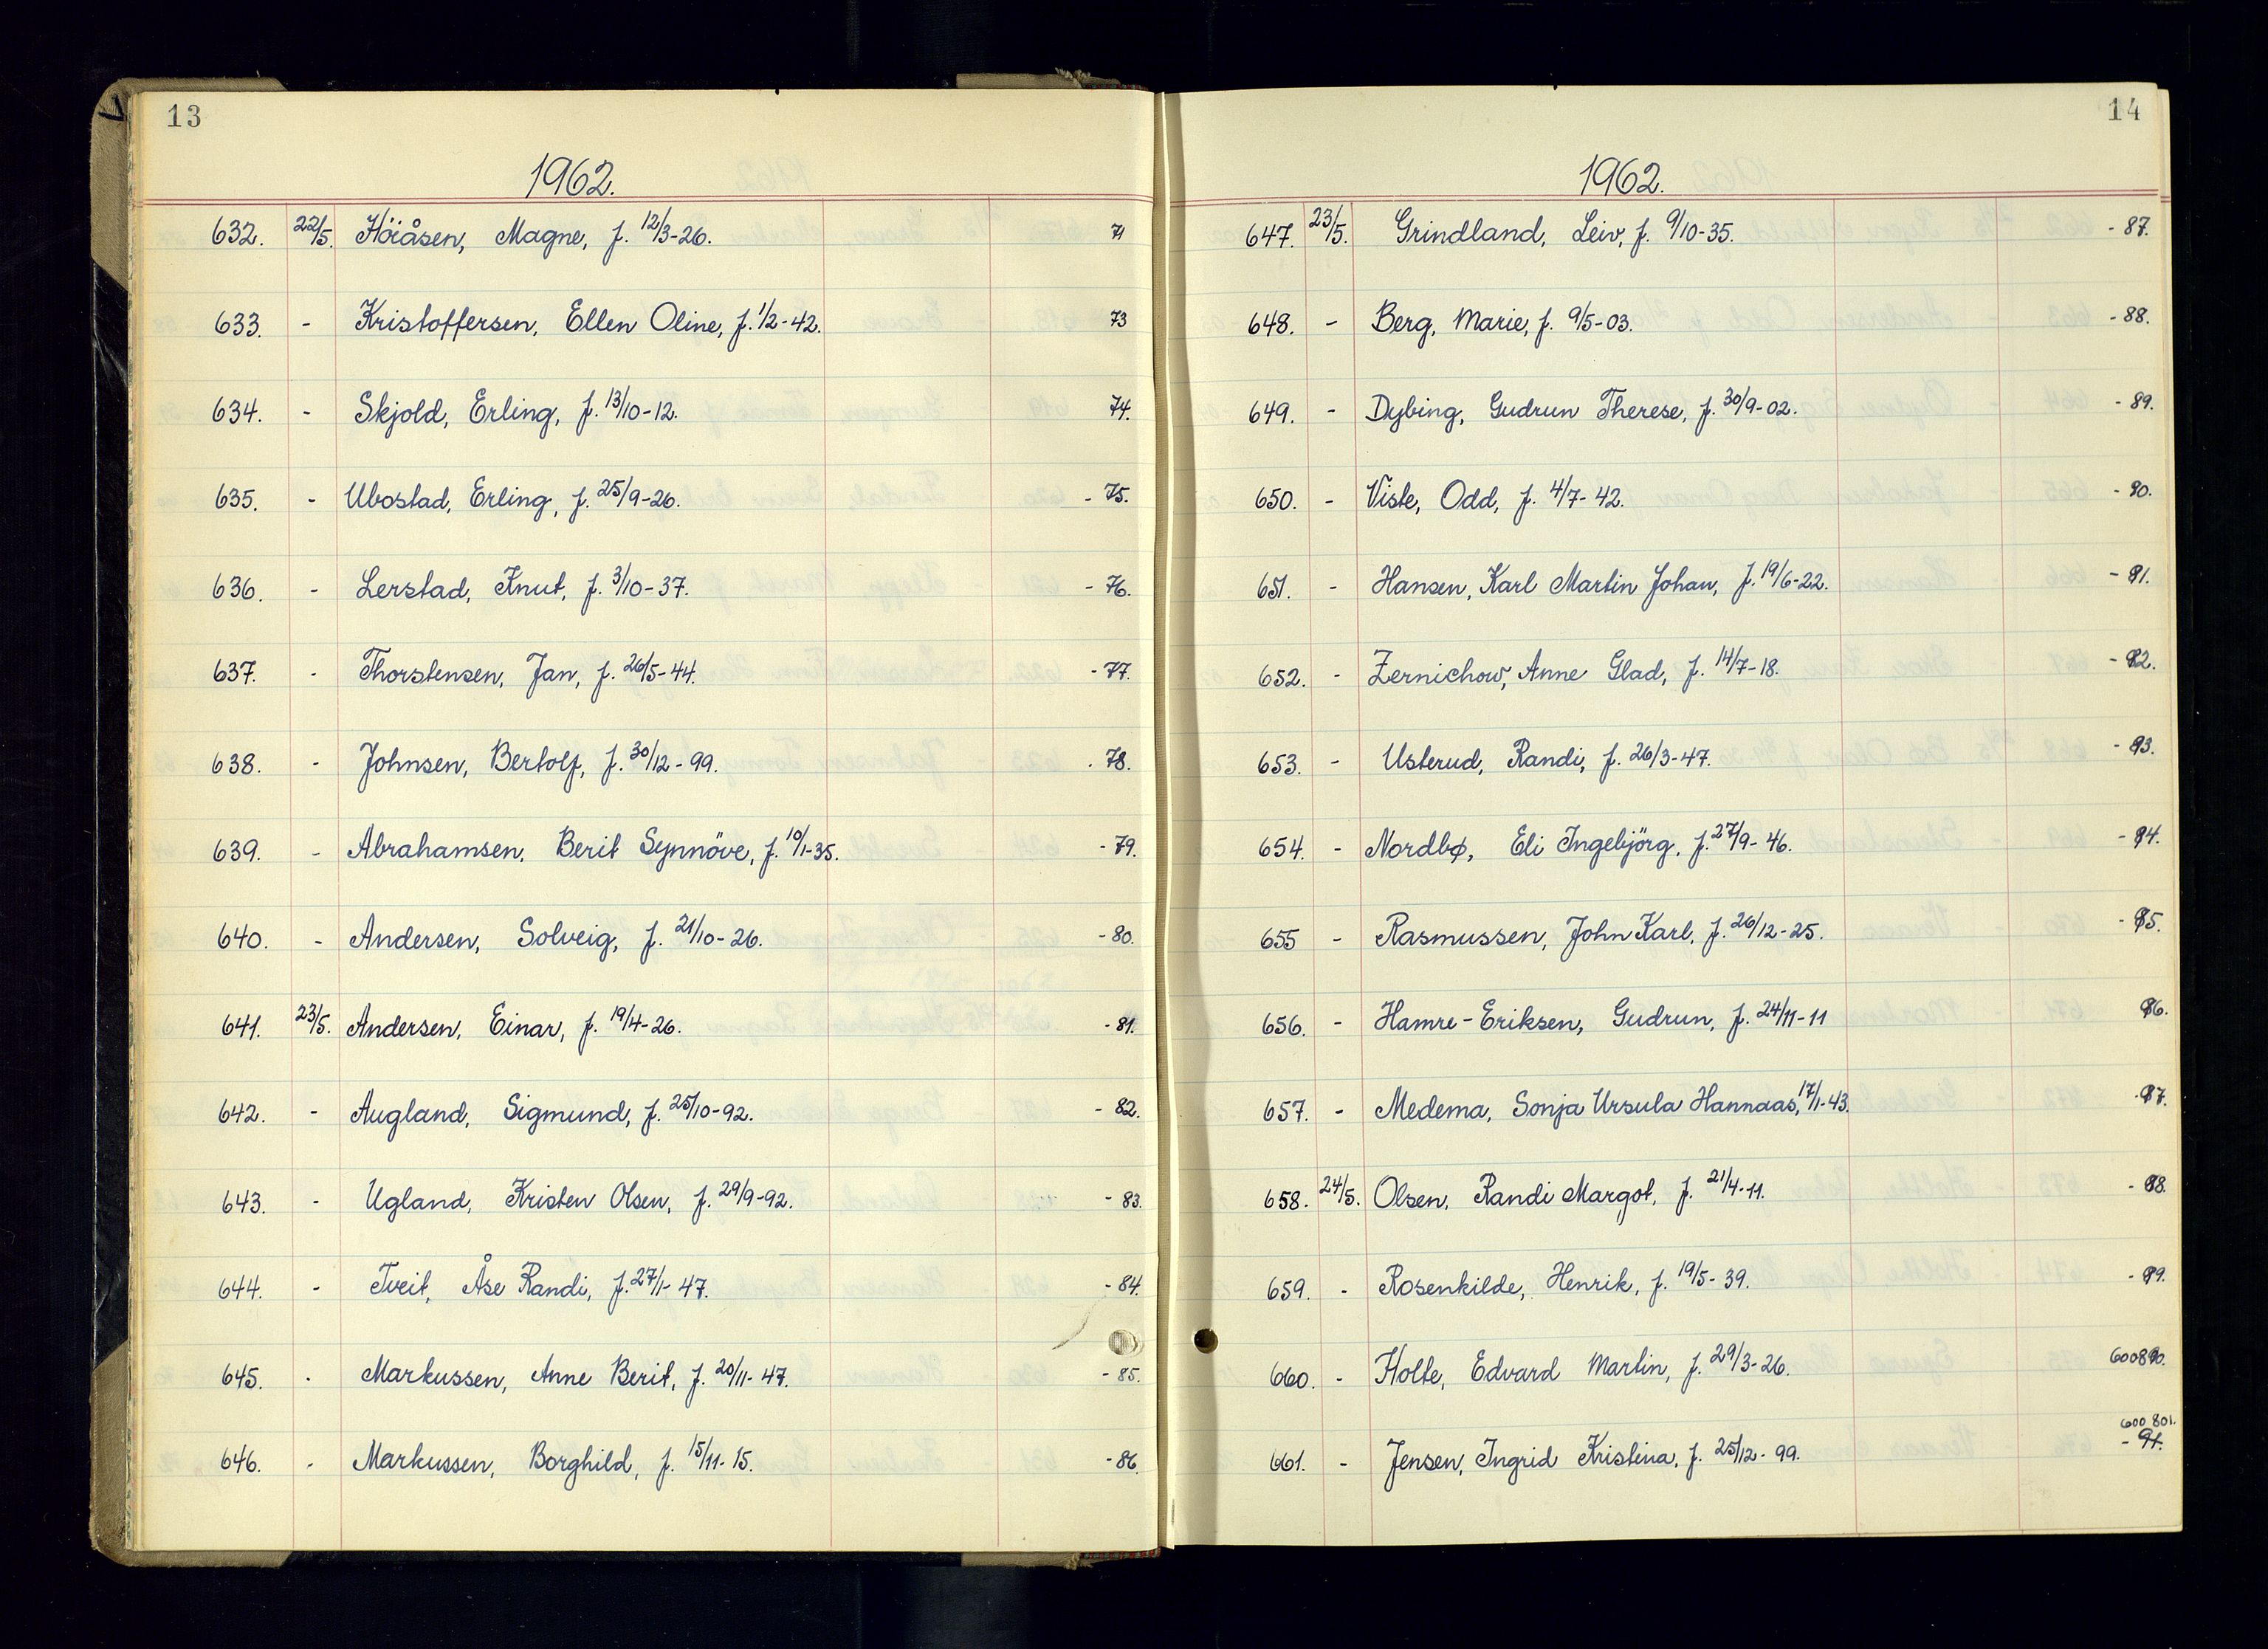 13
1962.
632. 22/5. Höiåsen, Magne, f. 12/3-26. 71
633. - Kristoffersen, Ellen Oline, f. 1/2-42. 73
634. - Skjold, Erling, f. 13/10-12. 74.
635. - Ubostad, Erling, f. 25/9-26. - 75.
636. - Lerstad, Knut, f. 3/10-37. - 76.
637. - Thorstensen, Jan, f. 26/5-44. - 77.
638. - Johnsen, Bertolf, f. 30/12-99. - 78.
639. - Abrahamsen, Berit Synnöve, f. 10/1-35. - 79.
640. - Andersen, Solveig, f. 21/10-26. - 80.
641. 23/5. Andersen, Einar, f. 19/4-26. - 81.
642. - Augland, Sigmund, f. 25/10-92. - 82.
643. - Ugland, Kristen Olsen, f. 29/9-92. - 83.
644. - Tveit, Åse Randi, f. 27/1-47. - 84.
645. - Markussen, Anne Berit, f. 20/11-47. - 85.
646. - Markussen, Borghild, f. 15/11-15. - 86.
14
1962.
647. 23/5. Grindland, Leiv, f. 9/10-35. - 87.
648. - Berg, Marie, f. 9/5-03. - 88.
649. - Dybing, Gudrun Therese, f. 30/9-02. - 89.
650. - Viste, Odd, f. 4/7-42. - 90.
651. - Hansen, Karl Martin Johan, f. 19/6-22. - 91.
652. - Zernichow, Anne Glad, f. 14/7-18. - 92.
653. - Usterud, Randi, f. 26/3-47. - 93.
654. - Nordbø, Eli Ingebjörg, f. 27/9-46. - 94.
655 - Rasmussen, John Karl, f. 26/12-25. - 95.
656. - Hamre-Eriksen, Gudrun, f. 24/11-11 96.
657. - Medema, Sonja Ursula Hannaas, 17/1-43. - 97.
658. 24/5. Olsen, Randi Margot, f. 21/4-11. - 98.
659. - Rosenkilde, Henrik, f. 19/5-39. - 99.
660. - Holte, Edvard Martin, f. 29/3-26.
600 801.
661. - Jensen, Ingrid Kristina, f. 25/12-99. - 91.